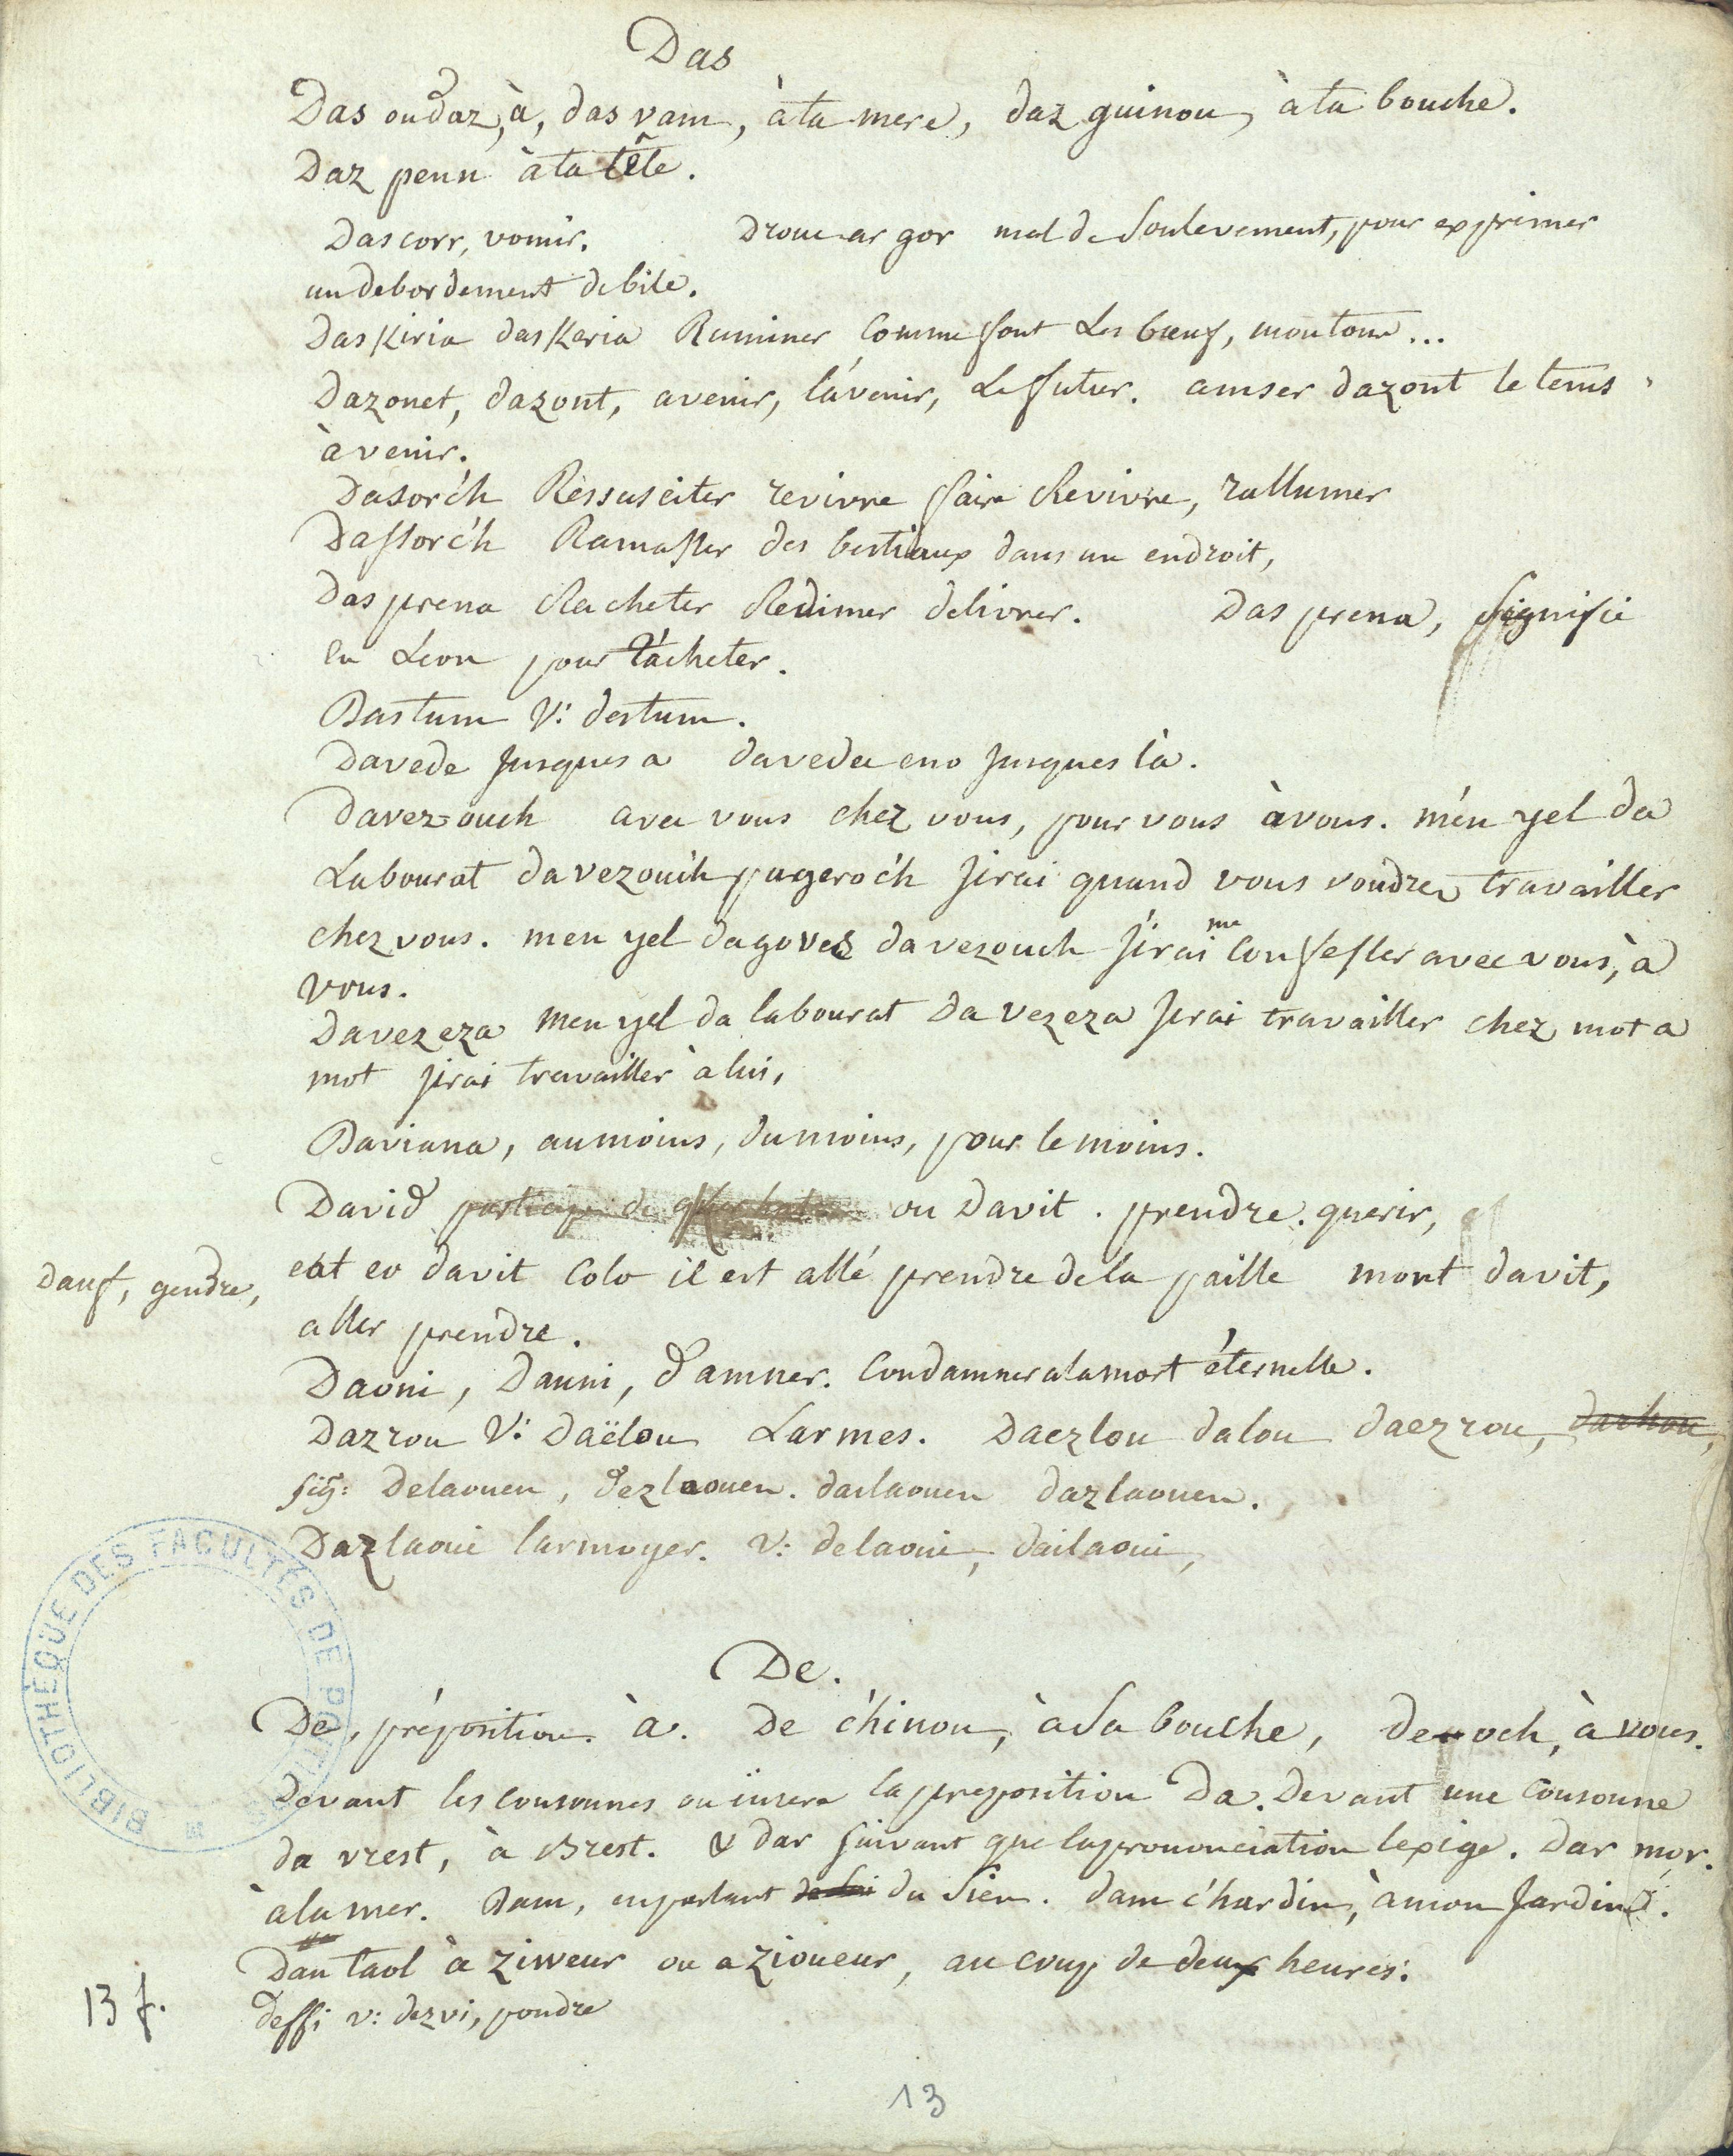 Das
Das ou daz, à, das vam, à ta mere, daz guinou, à ta bouche.
Daz penn à ta tête.
Dascorr, vomir. Drouc ar gor mal de soulevement, pour exprimer
un debordement de bile.
Daskiria daskeria Ruminer comme font les bœufs, moutons...
Dazonet, dazont, avenir, l'avenir, le futur. amser dazont le tems
à venir.
Dasorc'h Ressusciter revivre faire Revivre, rallumer
Dastorc'h Ramasser des bestiaux dans un endroit,
Dasprena Racheter Redimer delivrer. Dasprena, signifie
en Leon pour t'acheter.
Dastum V: destum.
Davede jusques a davede eno jusques là.
Davez-ouch avec vous chez vous, pour vous à vous. m'en yel da
Labourat davezouc'h pa geroc'h j'irai quand vous voudrez travailler
chez vous. men yel da goves davezouch j'irai me confesser avec vous, à
vous.
Davezeza men yel da labourat davezeza jirai travailler chez mot a
mot jirai travailler à lui,
Daviana, au moins, du moins, pour le moins.
David ou Davit. prendre. querir,
eat eo davit Colo il est allé prendre de la paille mont davit,
aller prendre.
Danf, gendre,
Daoni, Dauni, damner. Condamner a la mort éternelle.
Dazrou V: Daëlou Larmes. Daezlou dalou daezrou,
sig: Delaouen, dezlaouen. dailaouen dazlaouen.
Dazlaoui larmoyer. V: delaoui, dailaoui,
De.
De, préposition à. De c'hinou, à sa bouche, de och, à vous.
Devant les consonnes on insere la preposition Da. Devant une consonne
da vrest, à Brest. & dar suivant que la prononciation lexige. Dar mor.
à la mer. Dam, en parlant du sien. dam c'hardin, à mon Jardin.
Dan taol à ziweur ou a zioueur, au coup de deux heures.
Deffi v: dezvi, pondre
13 f.
13
BIBLIOTHÈQUE DES FACULTÉS DE POITIERS